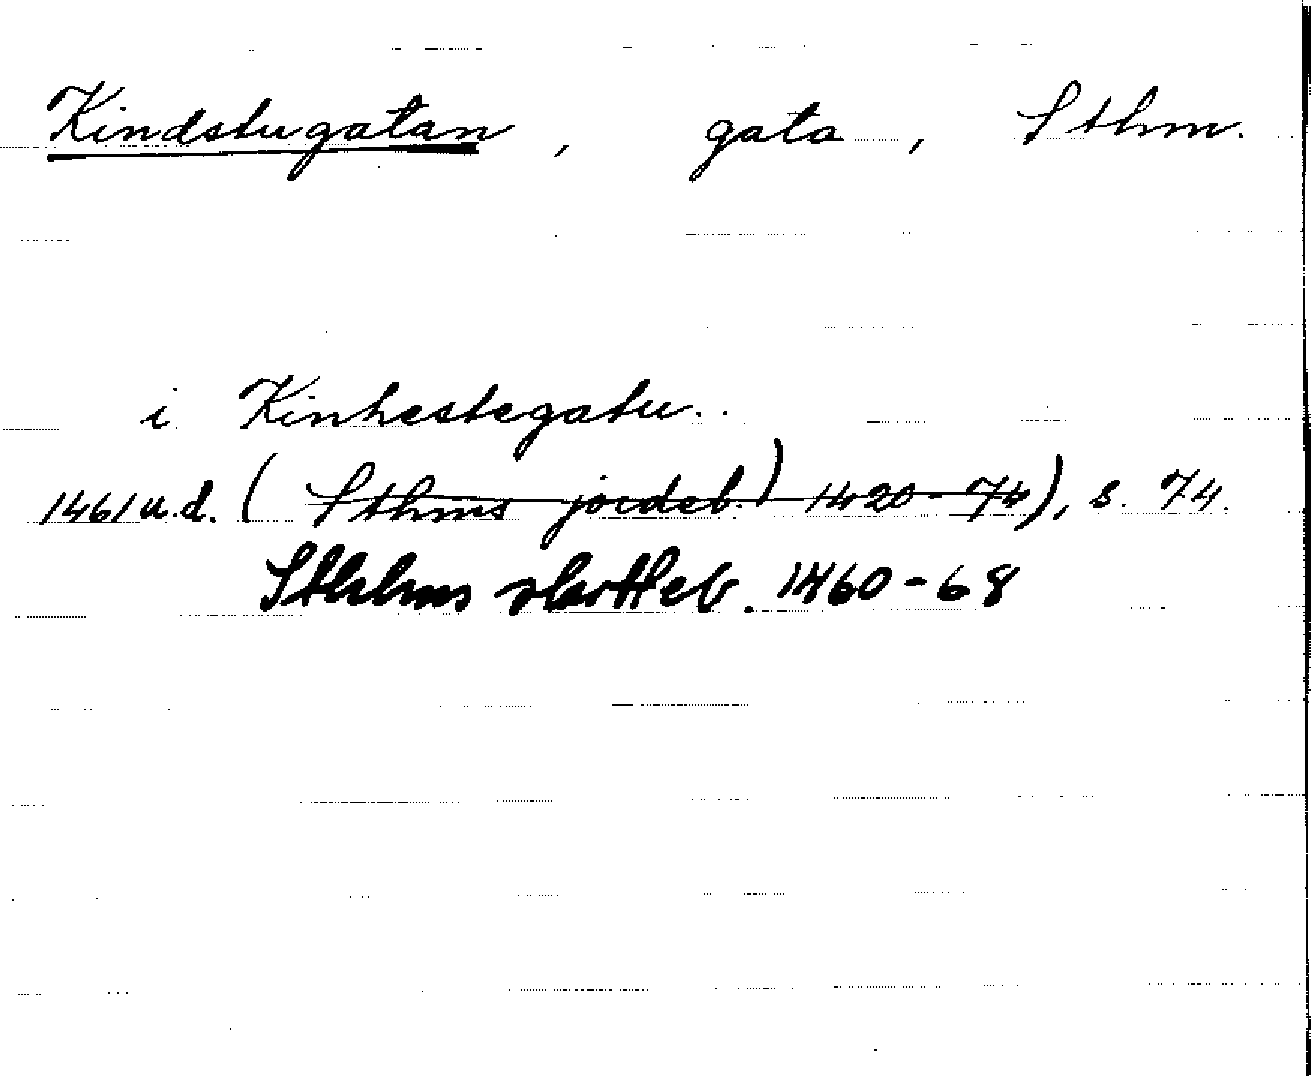 Kindstugatan, gata, Sthm.
i Kinhestegatu.
1461 u.d. (Sthms jordeb.) 1420-74), s. 74.
Sthlms skotteb. 1460-68